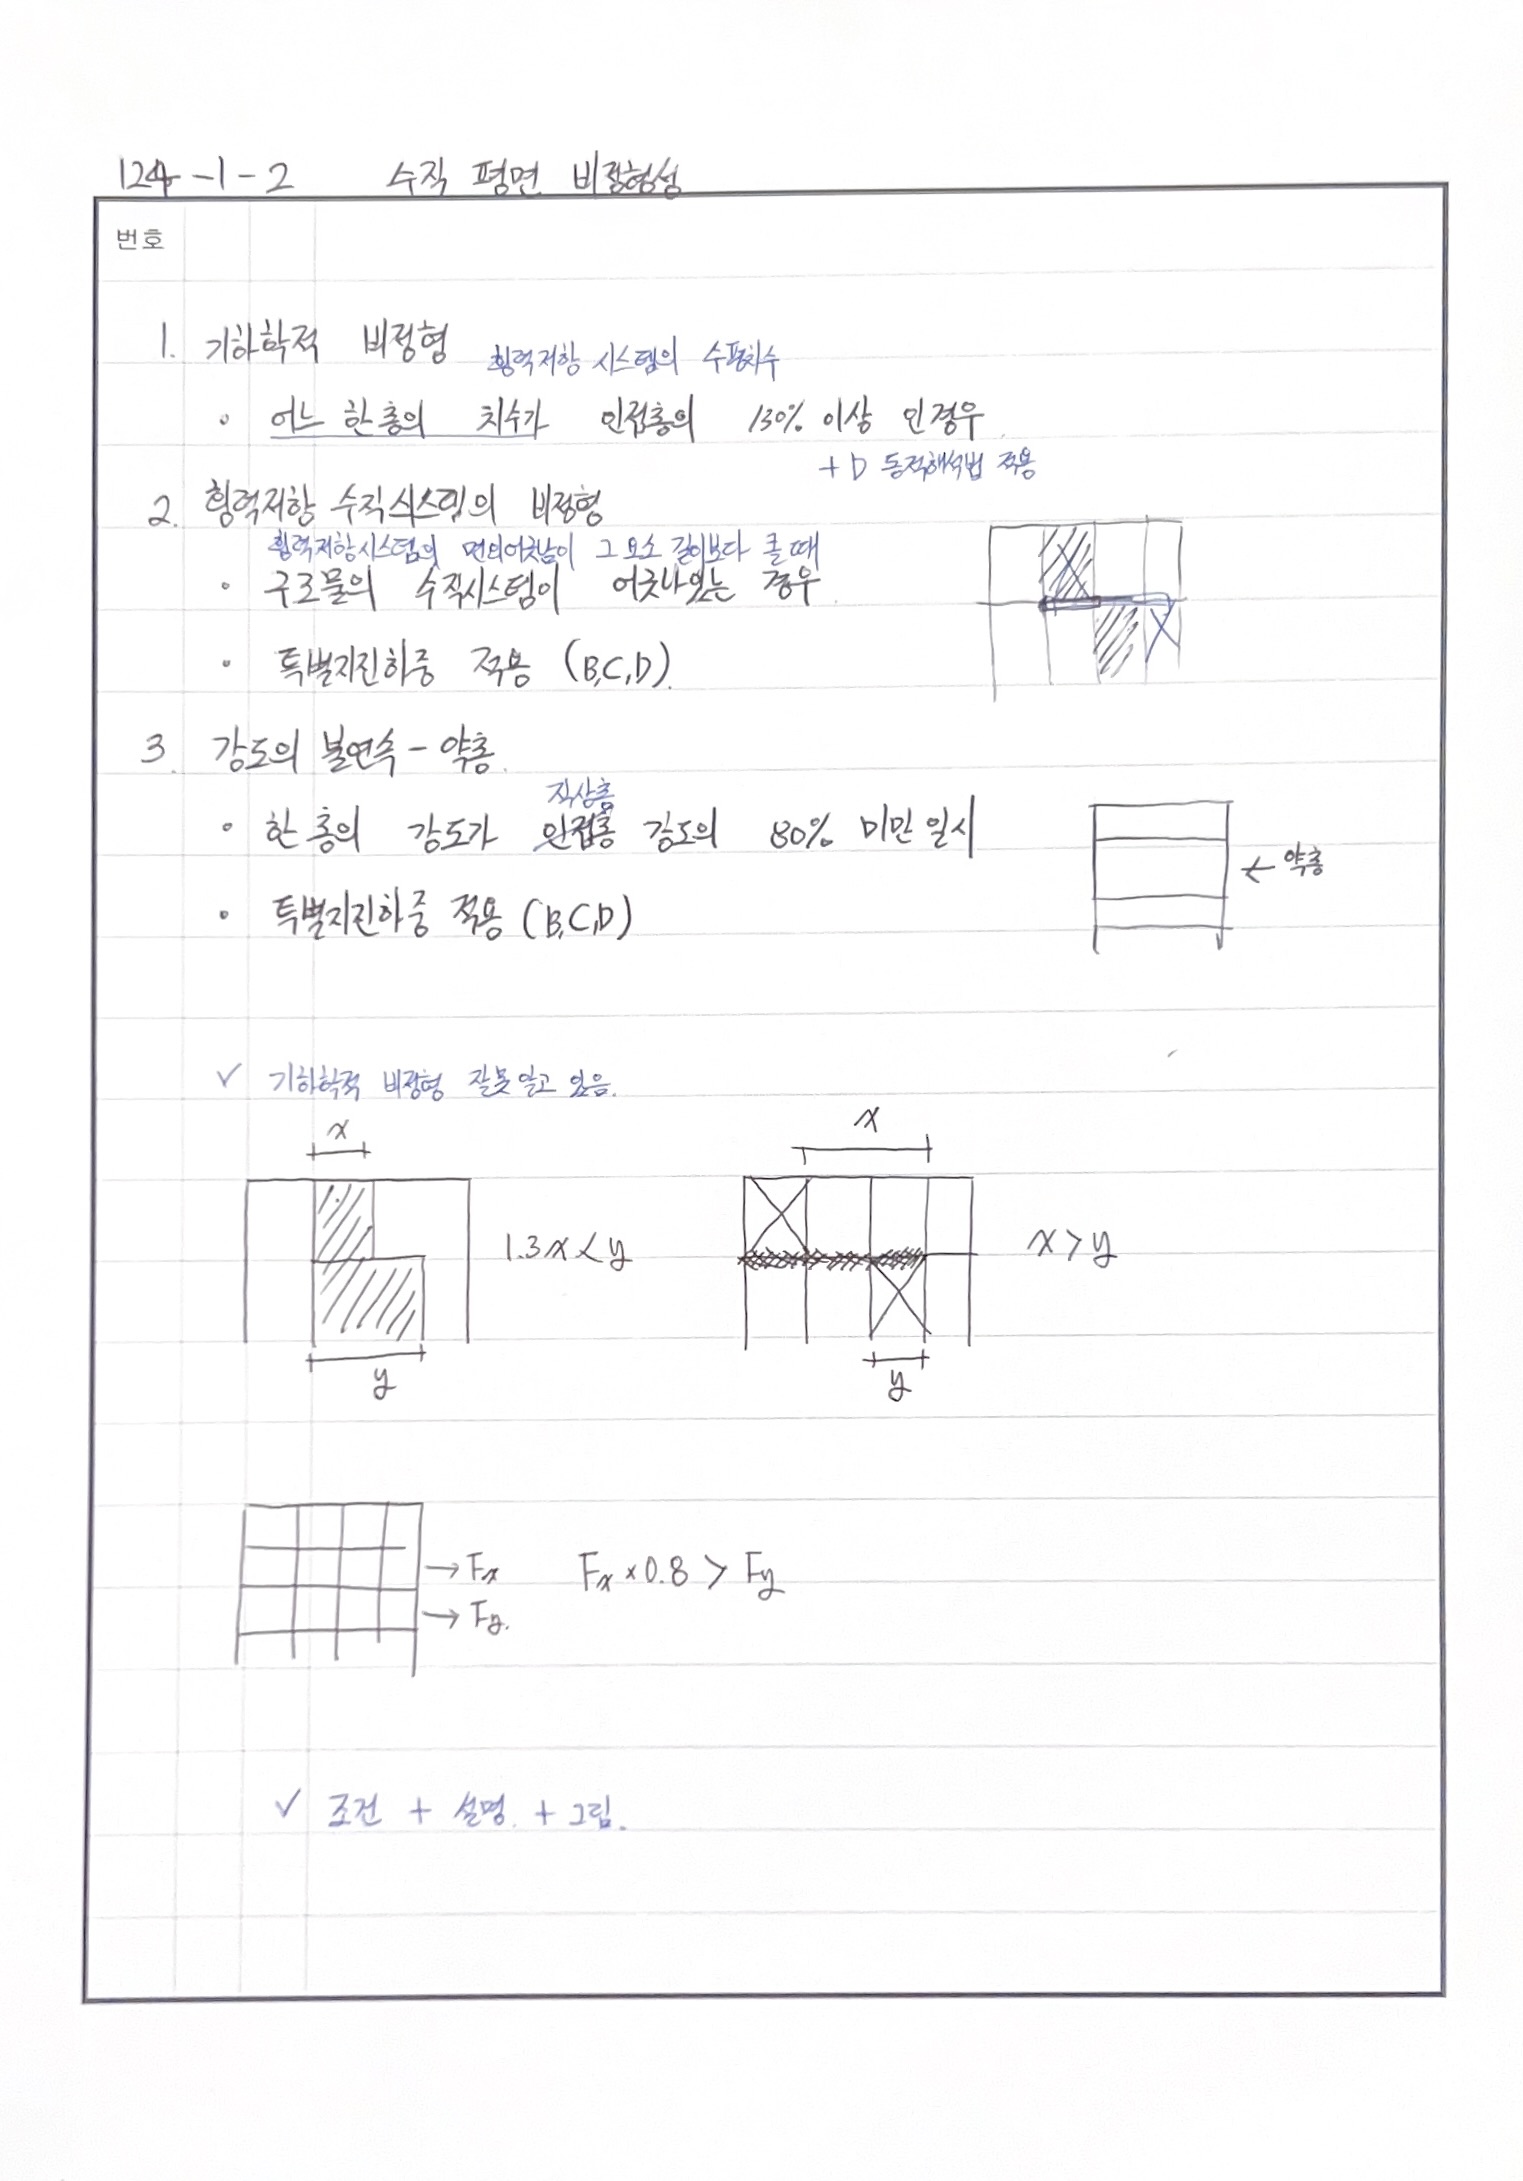 124-1-2 수직 평면 비정형성
번호
1. 기하학적 비정형
횡력저항 시스템의 수평치수
• 어느 한 층의 치수가 인접층의 130% 이상 인경우
+ D 동적해석법 적용
2. 횡력저항 수직시스템의 비정형
횡력저항시스템의 면의어긋남이 그 요소 길이보다 클 때
• 구조물의 수직시스템이 어긋나있는 경우
• 특별지진하중 적용 (B,C,D).
3. 강도의 불연속 - 약층.
직상층
• 한 층의 강도가 인접층 강도의 80% 미만 일시
← 약층
• 특별지진하중 적용 (B,C,D)
✓ 기하학적 비정형 잘못 알고 있음.
x
x
1.3x < y
x > y
y
y
→ Fx
Fx × 0.8 > Fy
→ Fy.
✓ 조건 + 설명. + 그림.